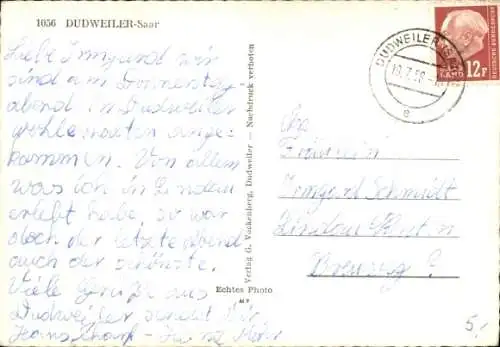 1056 DUDWEILER-Saar
Liebe Irmgard wir
sind am Donnerstag-
abend in Dudweiler
wohlbehalten ange-
kommen. Von allem
was ich in Lindau
erlebt habe, so war
doch der letzte Abend
auch der schönste.
Viele Grüße aus
Dudweiler sendet dir
Verlag G. Vackenberg, Dudweiler — Nachdruck verboten
Echtes Photo
DUDWEILER (SAAR)
e
LAND 12F
DEUTSCHE BUNDESPOST
Fräulein
Irmgard Schmidt
Lindau
5,-